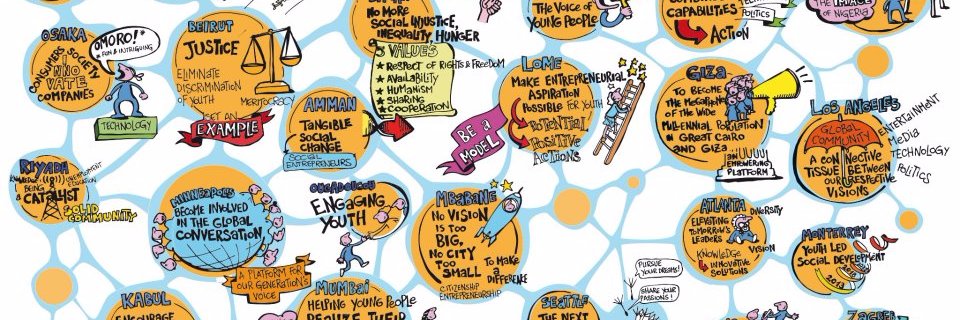 NO MORE
SOCIAL INJUSTICE,
INEQUALITY, HUNGER
THE VOICE OF
YOUNG PEOPLE
CAPABILITIES
ACTION
POLITICS
OF NIGERIA
OSAKA
CONSUMERS SOCIETY
INNO
VATE
COMPANIES
OMORO!*
FUN & INTRIGUING
TECHNOLOGY
BEIRUT
JUSTICE
ELIMINATE
DISCRIMINATION
OF YOUTH
MERITOCRACY
SET AN
EXAMPLE
VALUES
RESPECT OF RIGHTS & FREEDOM
AVAILABILITY
HUMANISM
SHARING
COOPERATION
AMMAN
TANGIBLE
SOCIAL
CHANGE
SOCIAL
ENTREPRENEURS
LOME
MAKE ENTREPRENEURIAL
ASPIRATION
POSSIBLE FOR YOUTH
POTENTIAL
POSITIVE
ACTIONS
BE A
MODEL
GIZA
TO BECOME
THE MEGAPHONE
OF THE WIDE
MILLENNIAL POPULATION
IN GREAT CAIRO
AND GIZA
EMPOWERING
PLATFORM
LOS ANGELES
GLOBAL
COMMUNITY
A CONNECTIVE
TISSUE BETWEEN
OUR RESPECTIVE
VISIONS
ENTERTAINMENT
MEDIA
TECHNOLOGY
POLITICS
RIYADH
BEING
A CATALYST
SOLID
COMMUNITY
MINNEAPOLIS
BECOME INVOLVED
IN THE GLOBAL
CONVERSATION
A PLATFORM FOR
OUR GENERATION'S
VOICE
OUGADOUGOU
ENGAGING
YOUTH
MBABANE
NO VISION
IS TOO
BIG,
NO CITY
TOO
SMALL
TO MAKE
A
DIFFERENCE
CITIZENSHIP
ENTREPRENEURSHIP
ATLANTA
DIVERSITY
ELEVATING
TOMORROW'S
LEADERS
VISION
KNOWLEDGE
INNOVATIVE
SOLUTIONS
MONTERREY
YOUTH LED
SOCIAL DEVELOPMENT
PURSUE
YOUR DREAMS!
SHARE YOUR
PASSIONS!
KABUL
ENCOURAGE
MUMBAI
HELPING YOUNG PEOPLE
REALIZE THEIR
SEATTLE
THE NEXT
ZAGREB